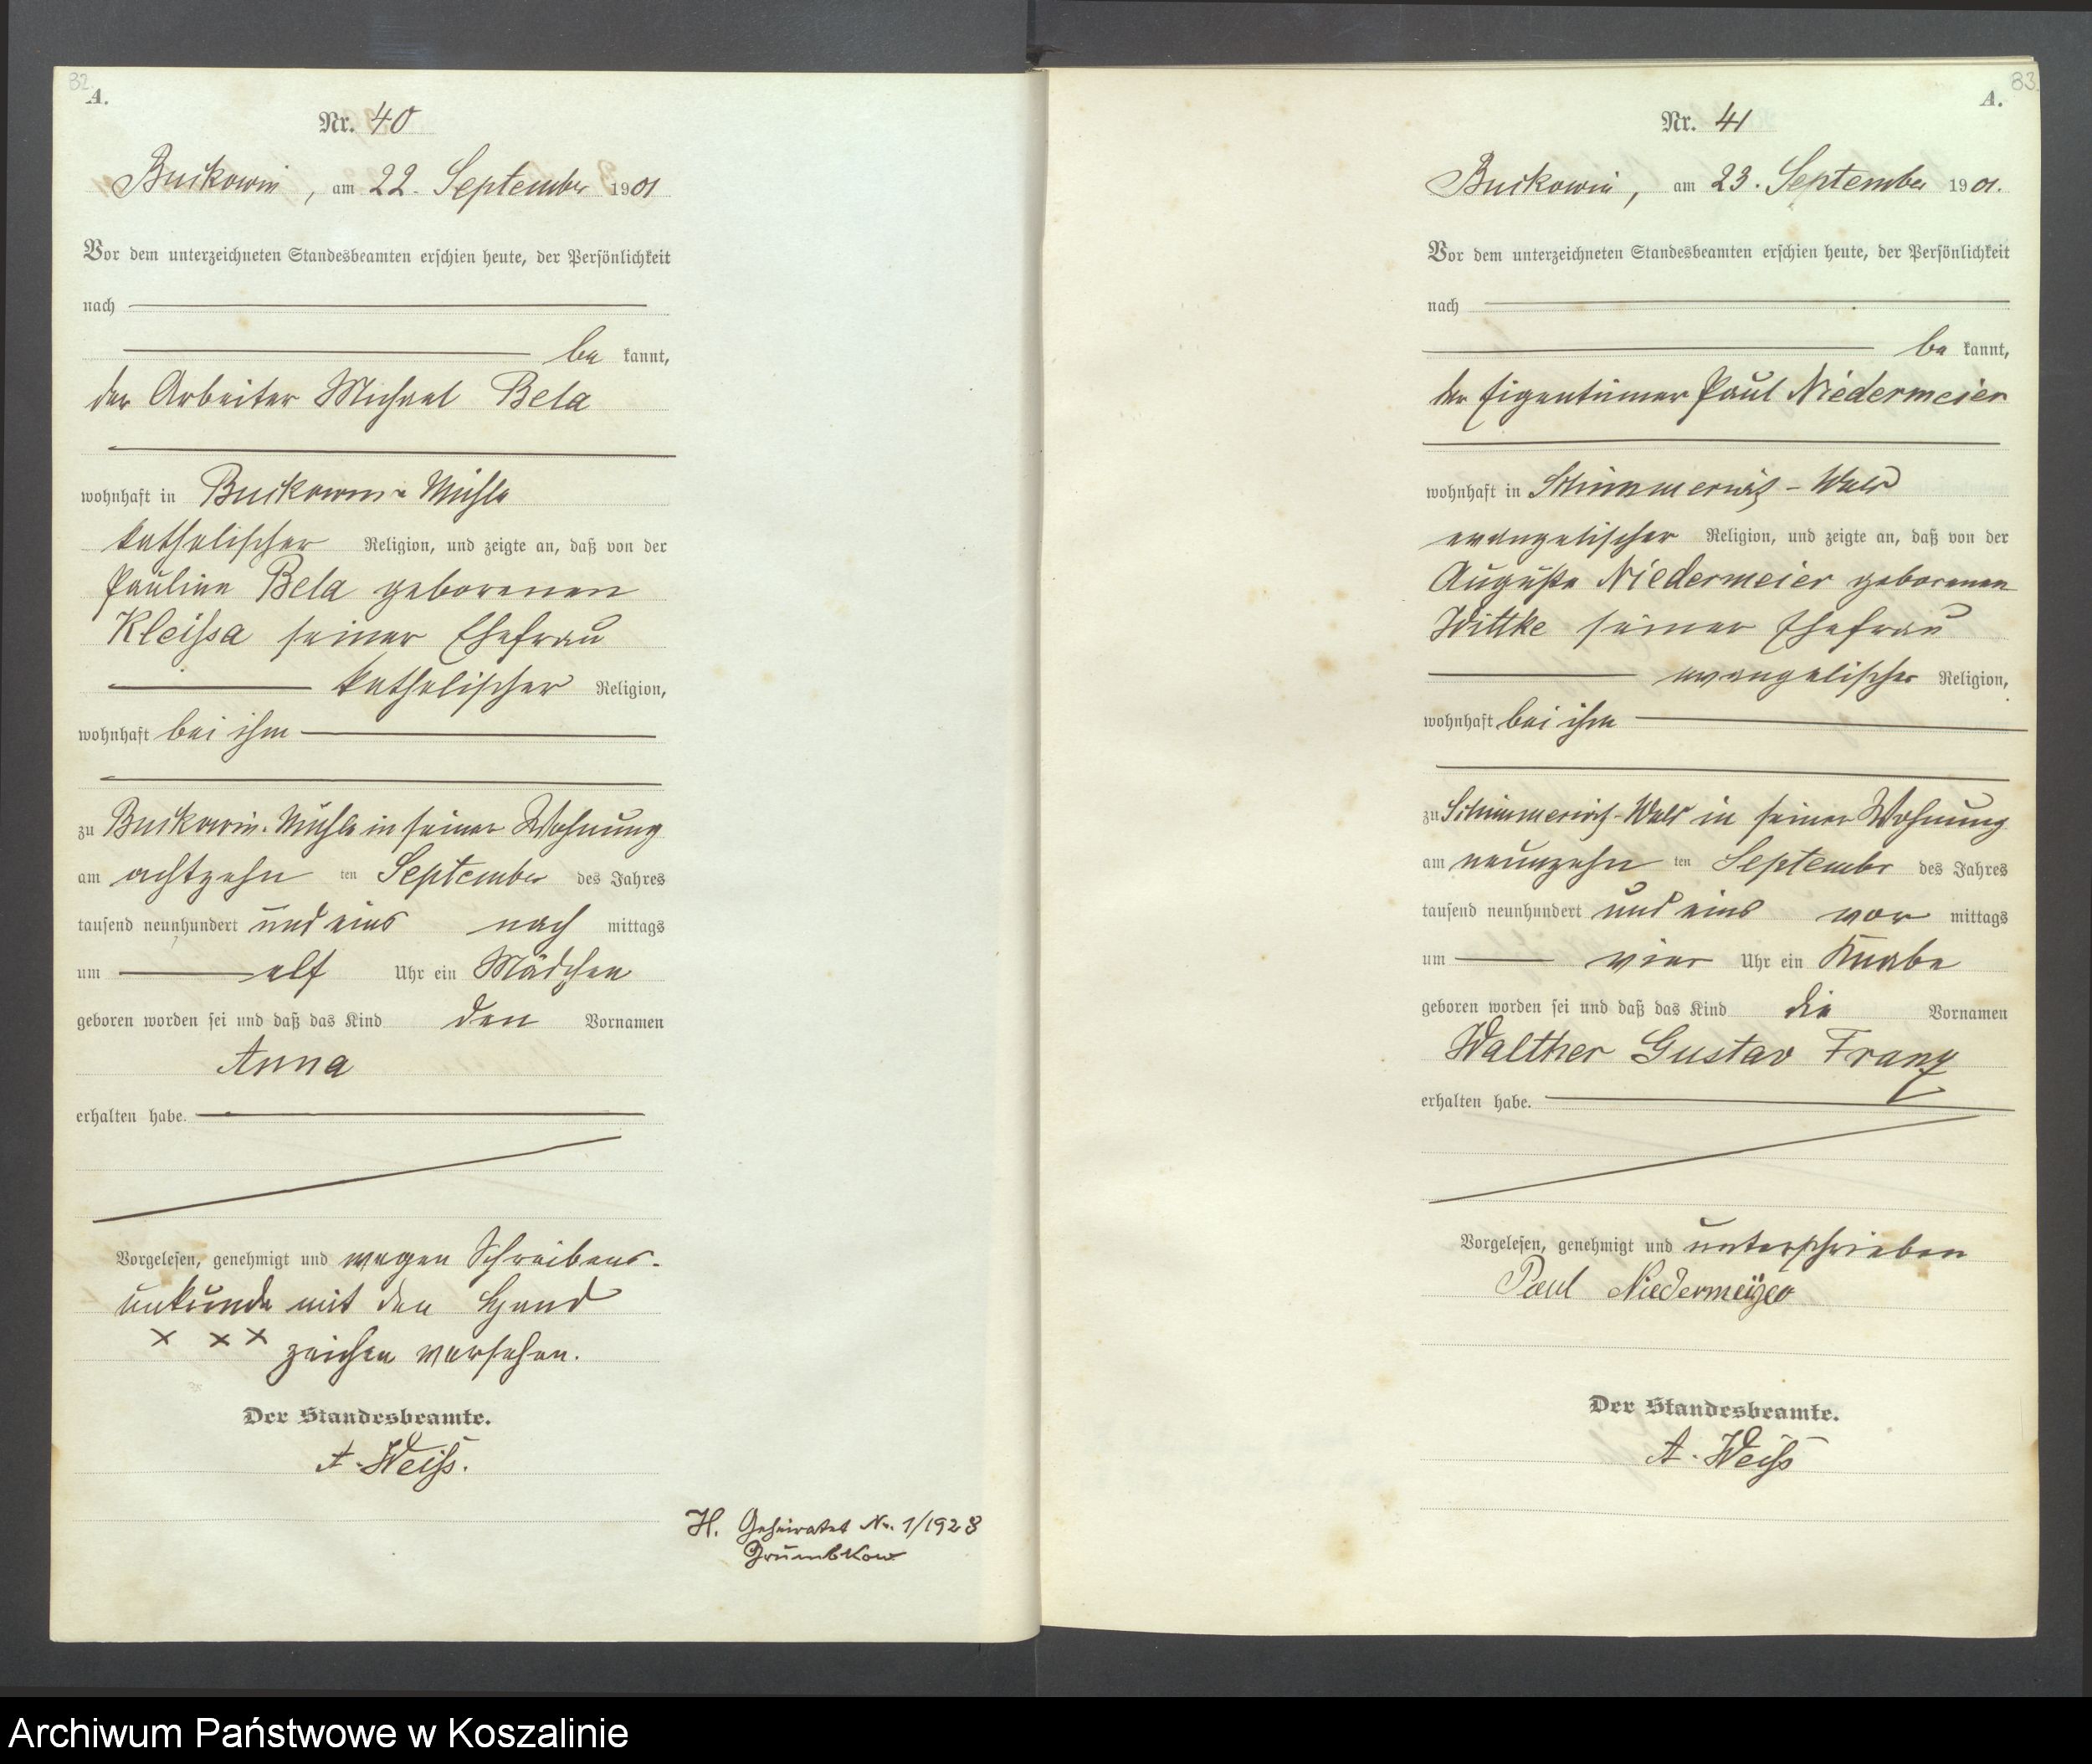 82
A.
Nr. 40
Buckowin, am 22. September 1901
Vor dem unterzeichneten Standesbeamten erschien heute, der Persönlichkeit
nach
be kannt,
der Arbeiter Michael Bela
wohnhaft in Buckowin-Mühle
katholischer Religion, und zeigte an, daß von der
Pauline Bela geborenen
Kleissa seiner Ehefrau
katholischer Religion,
wohnhaft bei ihm
zu Buckowin-Mühle in seiner Wohnung
am achtzehn ten September des Jahres
tausend neunhundert und eins nach mittags
um elf Uhr ein Mädchen
geboren worden sei und daß das Kind den Vornamen
Anna
erhalten habe.
Vorgelesen, genehmigt und wegen Schreibens-
unkunde mit den Hand
x x x zeichen versehen.
Der Standesbeamte.
A. Weiß.
H. Geheiratet Nr. 1/1928
Grumbkow
83
A.
Nr. 41
Buckowin, am 23. September 1901.
Vor dem unterzeichneten Standesbeamten erschien heute, der Persönlichkeit
nach
be kannt,
der Eigentümer Paul Niedermeier
wohnhaft in Schimmerwitz-Wald
evangelischer Religion, und zeigte an, daß von der
Auguste Niedermeier geborenen
Wittke seiner Ehefrau
evangelischer Religion,
wohnhaft bei ihm
zu Schimmerwitz-Wald in seiner Wohnung
am neunzehn ten Septembr des Jahres
tausend neunhundert und eins vor mittags
um vier Uhr ein Knabe
geboren worden sei und daß das Kind die Vornamen
Walther Gustav Franz
erhalten habe.
Vorgelesen, genehmigt und unterschrieben
Paul Niedermeijer
Der Standesbeamte.
A. Weiß
Archiwum Państwowe w Koszalinie